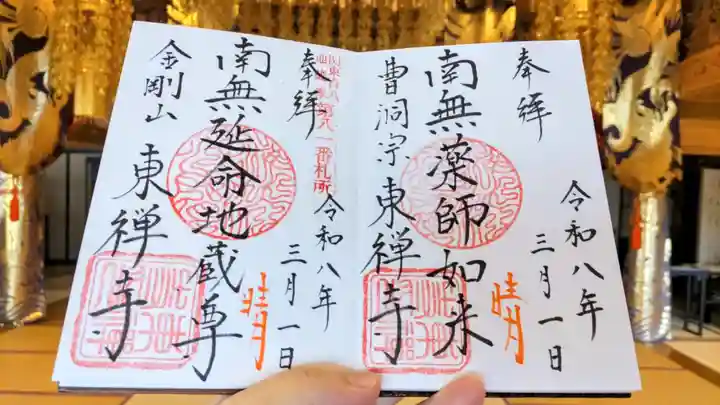 奉拝
南無薬師如来
曹洞宗東禅寺
令和八年
三月一日
晴
奉拝
番札所
南無延命地蔵尊
金剛山
東禅寺
令和八年
三月一日
晴